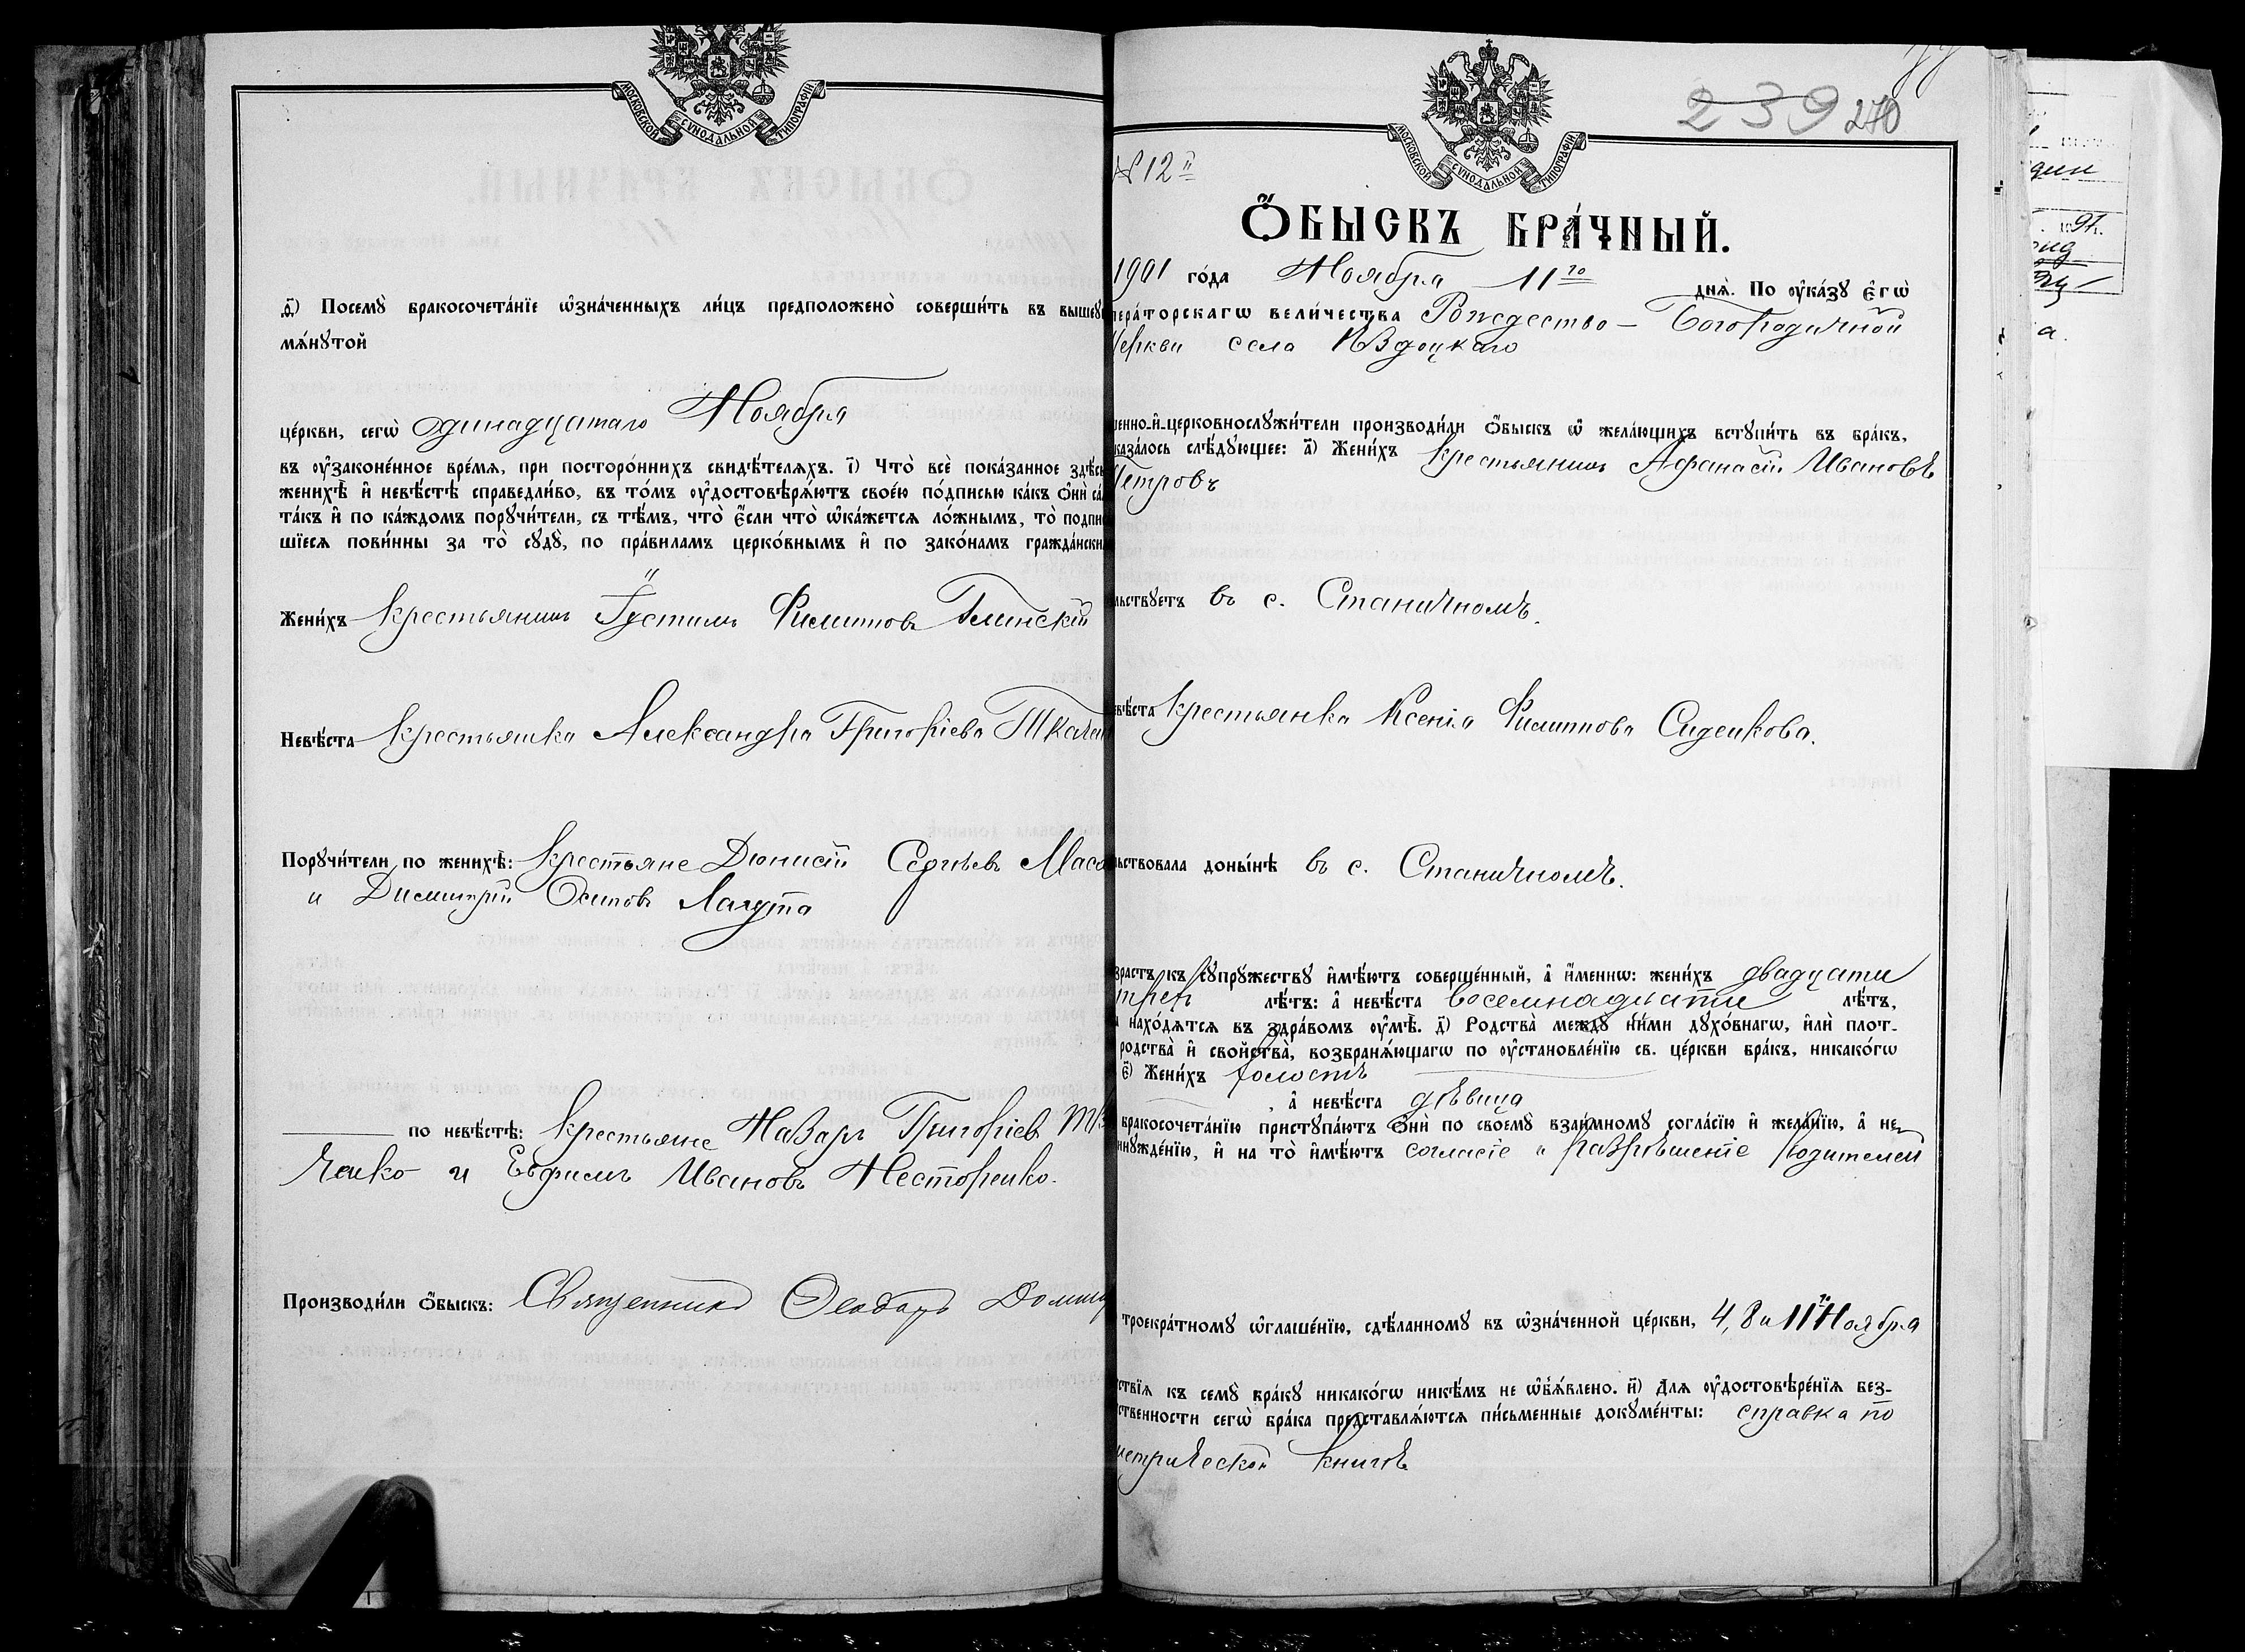 МОСКОВСКОЙ СѴНОДАЛЬНОЙ ТИПОГРАФІИ
д҃і) Посемꙋ бракосочета́нїе ѡ҆зна́ченныхъ ли́цъ предположено̀ соверши́ть въ вышеꙋ
мѧ́нꙋтой
це́ркви, сегѡ̀ одинадцатаго Ноября
въ ᲂу҆законе́нное вре́мѧ, при посторо́ннихъ свидѣ́телѧхъ. і҃) Что̀ всѐ пока́занное здѣсь
женихѣ̀ и҆ невѣ́стѣ справедли́во, въ то́мъ ᲂу҆достовѣрѧ́ютъ свое́ю по́дписью ка́къ ѻ҆нѝ са
та́къ и҆ по ка́ждомъ порꙋчи́тели, съ тѣ́мъ, что̀ є҆́сли что̀ ѡ҆ка́жетсѧ ло́жнымъ, то̀ подпи
шїесѧ пови́нны за то̀ сꙋдꙋ̀, по пра́виламъ церко́внымъ и҆ по зако́намъ гражда́нски
Жени́хъ крестьянинъ Іустинъ Филиповъ Глинскій
Невѣ́ста крестьянка Александра Григоріева Ткачен
Порꙋчи́тели по женихѣ̀: крестьяне Діонисій Сергѣевъ Масо
и Димитрій Осиповъ Лагута
по невѣ́стѣ: крестьяне Назаръ Григоріев Тка
ченко и Евфимъ Ивановъ Нестеренко.
Производи́ли ѻ҆́быскъ: Священникъ Ѳеодоръ
239 270
МОСКОВСКОЙ СѴНОДАЛЬНОЙ ТИПОГРАФІИ
№ 12 й
Ѻ҆́БЫСКЪ БРА́ЧНЫЙ.
1901 го́да Ноября 11го днѧ̀. По ᲂу҆ка́зꙋ є҆гѡ̀
пера́торскагѡ вели́чества Рождество-Богородичной
церкви села Ивдоцкаго
енно-и҆-церковнослꙋжи́тели производи́ли ѻ҆́быскъ ѡ҆ жела́ющихъ встꙋпи́ть въ бра́къ,
каза́лось слѣ́дꙋющее: а҃) Жени́хъ крестьянинъ Афанасій Ивановъ
Петровъ
льствꙋетъ въ с. Станичномъ.
вѣ́ста крестьянка Ксенія Филиппова Сиденкова.
ьствовала доны́нѣ въ с. Станичномъ.
зрастъ къ сꙋпрꙋ́жествꙋ и҆мѣ́ютъ соверше́нный, а҆ и҆́меннѡ: жени́хъ двадцати
трех лѣ́тъ: а҆ невѣ́ста восемнадцати лѣ́тъ,
и нахо́дѧтсѧ въ здра́вомъ ᲂу҆мѣ̀. д҃) Родства̀ междꙋ̀ ни́ми дꙋхо́внагѡ, и҆лѝ плот-
родства̀ и҆ свойства̀, возбранѧ́ющагѡ по ᲂу҆становле́нїю св. це́ркви бра́къ, никако́гѡ
є҃) Жени́хъ холостъ
, а҆ невѣ́ста дѣвица
бракосочета́нїю пристꙋпа́ютъ ѻ҆нѝ по своемꙋ̀ взаи́мномꙋ согла́сїю и҆ жела́нїю, а҆ не
инꙋжде́нїю, и҆ на то̀ и҆мѣ́ютъ согласіе и разрѣшеніе родителей
троекра́тномꙋ ѡ҆глаше́нїю, сдѣ́ланномꙋ въ ѡ҆зна́ченной це́ркви, 4, 8 и 11го Ноября
ствїѧ къ семꙋ̀ бра́кꙋ никако́гѡ никѣ́мъ не ѡ҆б̾ѧ́влено. и҃) Длѧ ᲂу҆достовѣре́нїѧ без-
ственности сегѡ̀ бра́ка представлѧ́ютсѧ пи́сьменные докꙋме́нты: справка по
метрической книгѣ